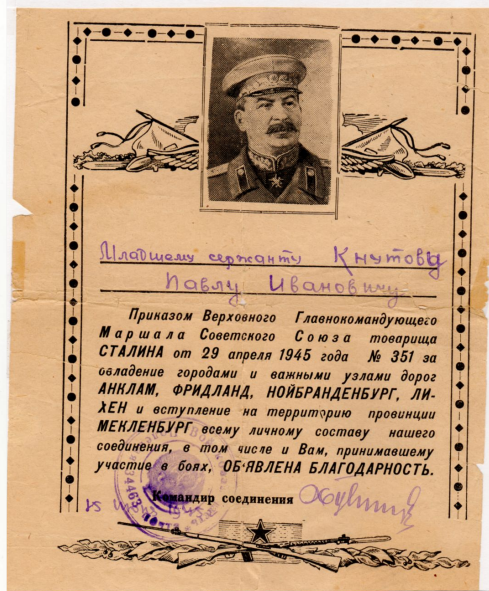 Младшему сержанту Кнутову
Павлу Ивановичу
Приказом Верховного Главнокомандующего
Маршала Советского Союза товарища
СТАЛИНА от 29 апреля 1945 года № 351 за
овладение городами и важными узлами дорог
АНКЛАМ, ФРИДЛАНД, НОЙБРАНДЕНБУРГ, ЛИ-
ХЕН и вступление на территорию провинции
МЕКЛЕНБУРГ всему личному составу нашего
соединения, в том числе и Вам, принимавшему
участие в боях, ОБ'ЯВЛЕНА БЛАГОДАРНОСТЬ.
Командир соединения
1945